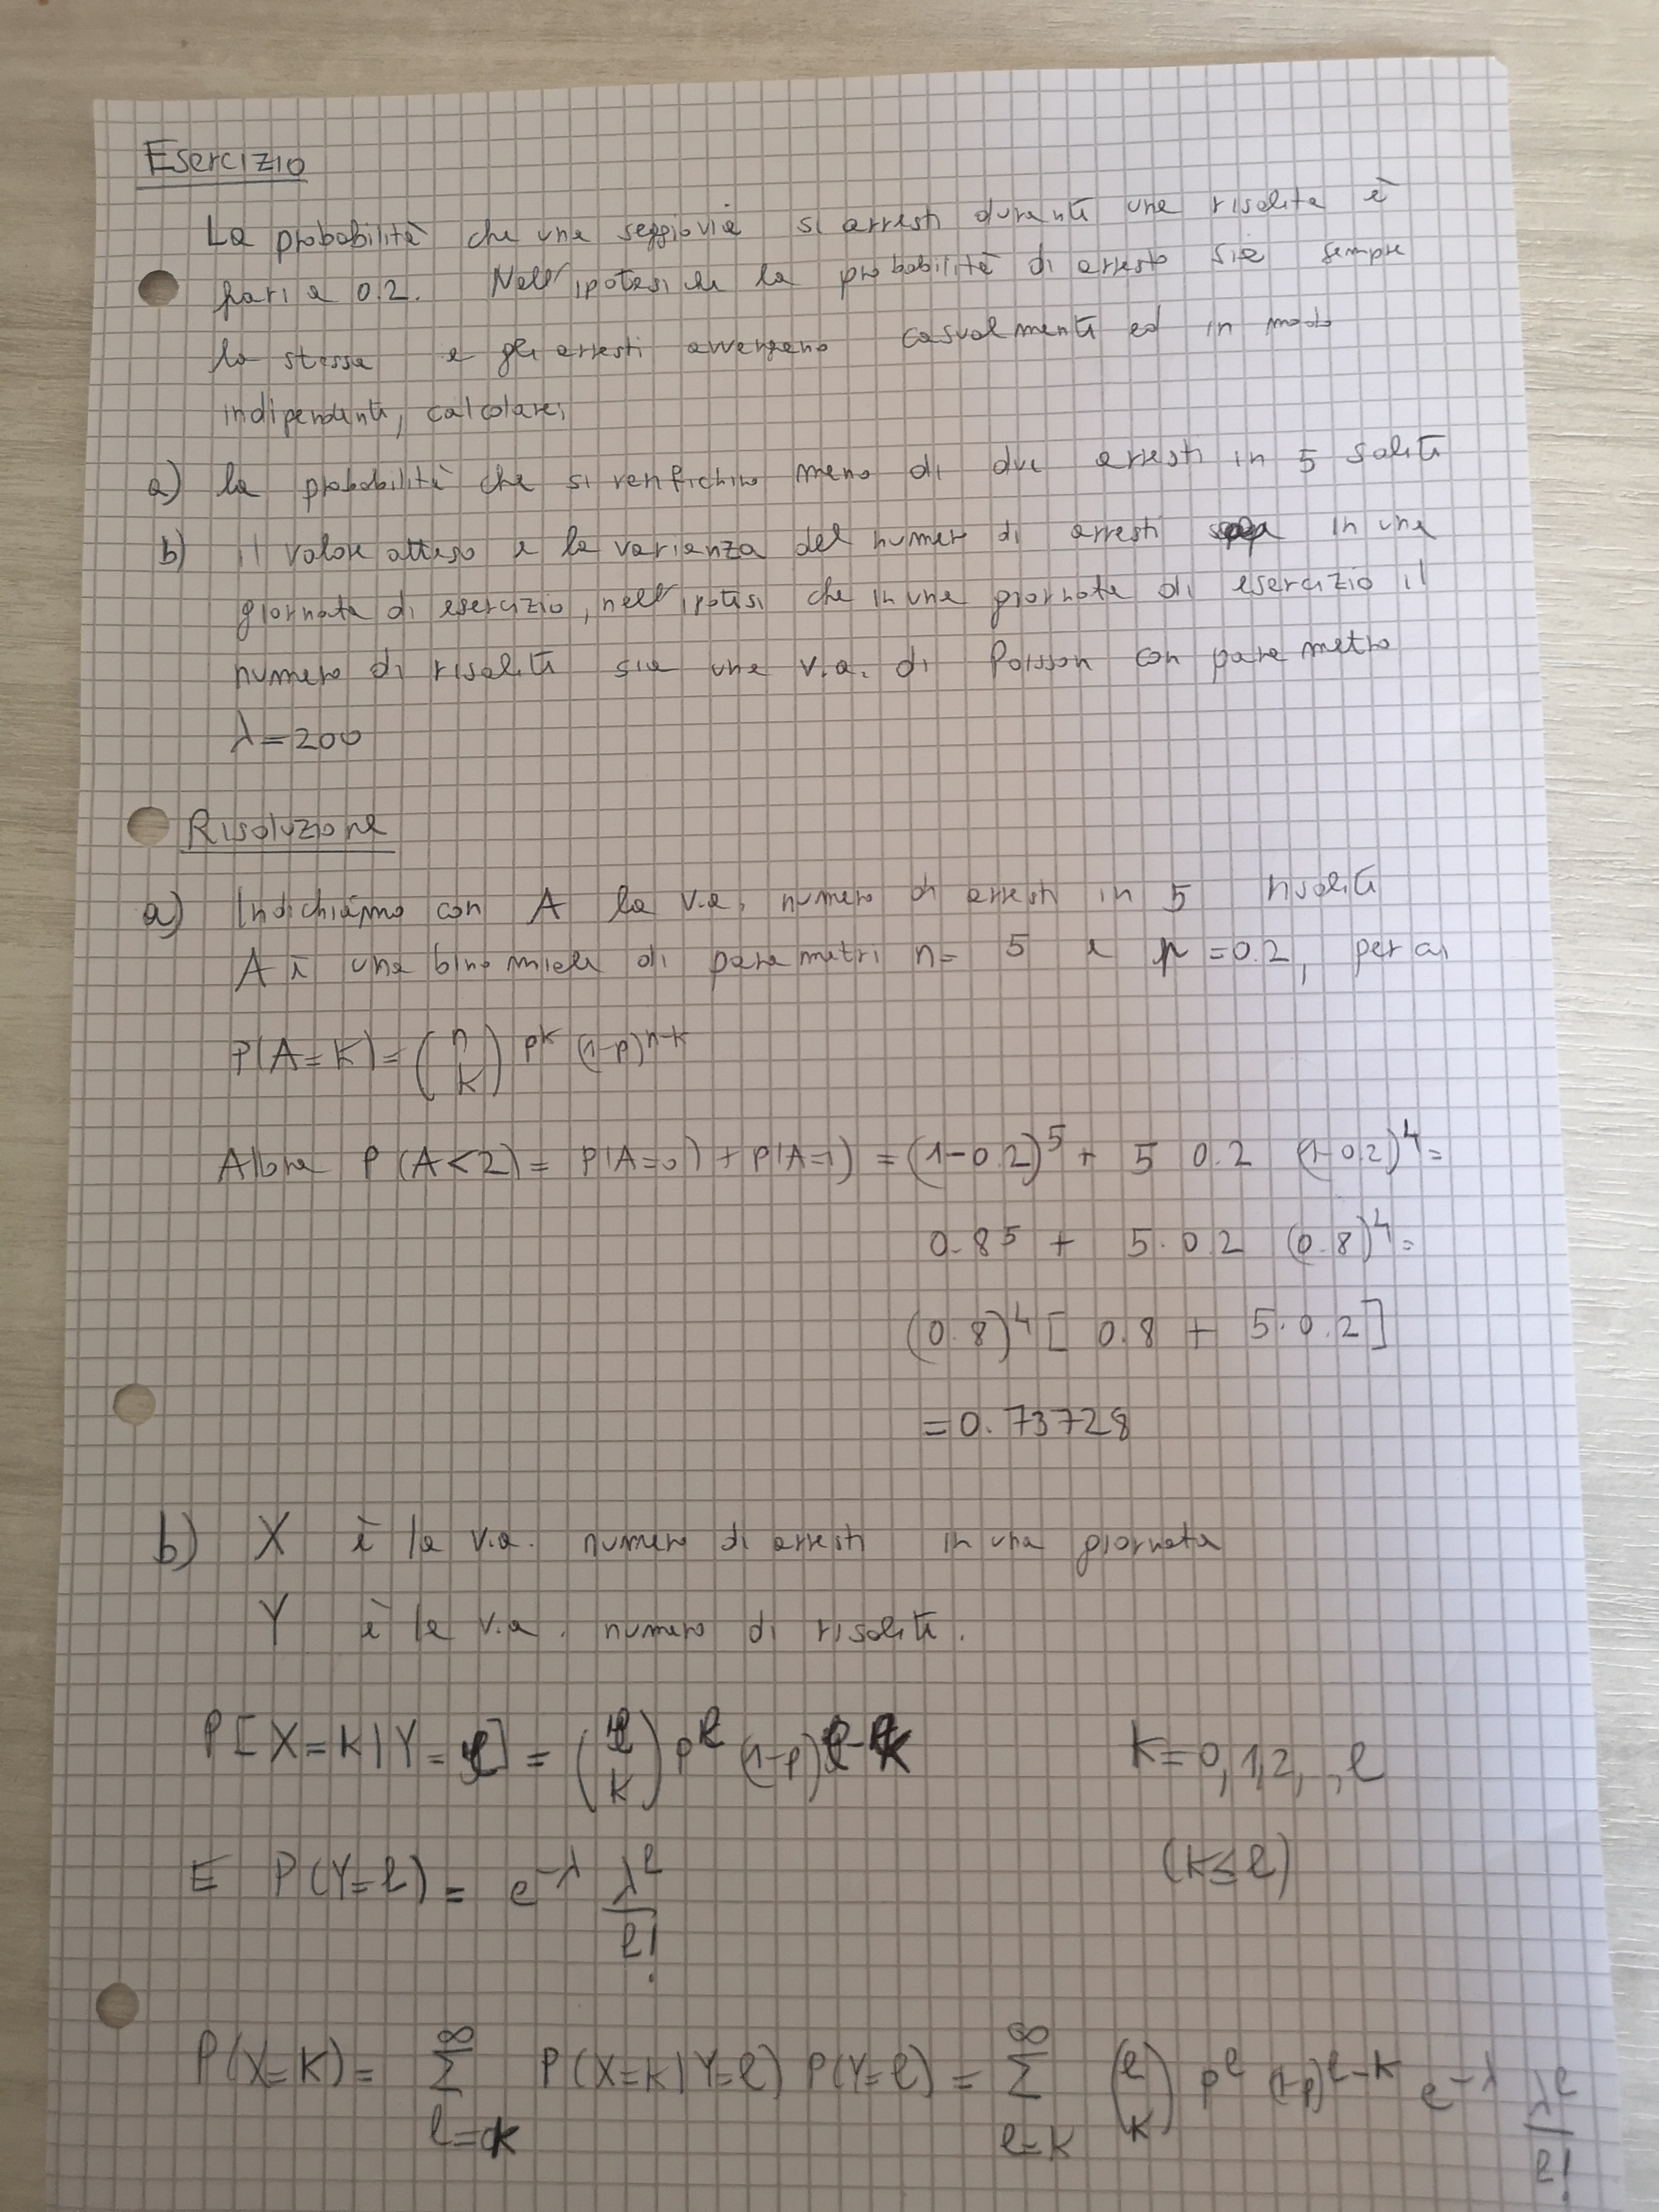 Esercizio
La probabilità che una seggiovia si arresti durante una risalita è
pari a 0.2. Nell'ipotesi che la probabilità di arresto sia sempre
la stessa e gli arresti avvengano casualmente ed in modo
indipendente, calcolare:
a) la probabilità che si verifichino meno di due arresti in 5 salite
b) il valore atteso e la varianza del numero di arresti in una
giornata di esercizio, nell'ipotesi che in una giornata di esercizio il
numero di risalite sia una v.a. di Poisson con parametro
λ=200
Risoluzione
a) Indichiamo con A la v.a. numero di arresti in 5 risalite
A è una binomiale di parametri n= 5 e p=0.2, per cui
P(A=K)= (n K) p^K (1-p)^{n-K}
Allora P(A<2)= P(A=0)+P(A=1) = (1-0.2)^5 + 5 0.2 (1-0.2)^4=
0.8^5 + 5·0.2 (0.8)^4=
(0.8)^4 [ 0.8 + 5·0.2]
=0.73728
b) X è la v.a. numero di arresti in una giornata
Y è la v.a. numero di risalite.
P[X=K|Y=ℓ] = (ℓ K) p^ℓ (1-p)^{ℓ-K} K=0,1,2,..,ℓ
E P(Y=ℓ) = e^{-λ} λ^ℓ/ℓ! (K≤ℓ)
P(X=K)= ∑_{ℓ=K}^∞ P(X=K|Y=ℓ) P(Y=ℓ) = ∑_{ℓ=K}^∞ (ℓ K) p^ℓ (1-p)^{ℓ-K} e^{-λ} λ^ℓ/ℓ!